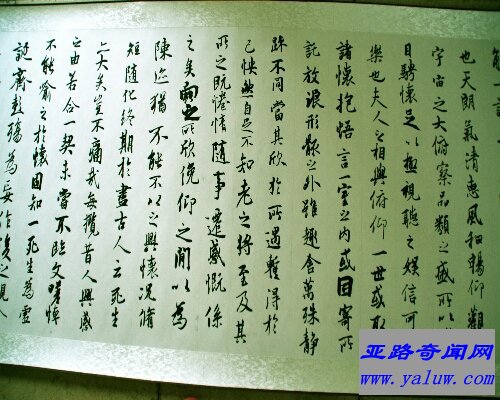 也天朗氣清惠風和暢仰觀
宇宙之大俯察品類之盛所以
目騁懷足以極視聽之娛信可
樂也夫人之相與俯仰一世或取
諸懷抱悟言一室之內或因寄所
託放浪形骸之外雖趣舍萬殊靜
躁不同當其欣於所遇暫得於
己怏然自足不知老之將至及其
所之既惓情隨事遷感慨係
之矣向之所欣俛仰之閒以為
陳迹猶不能不以之興懷況脩
短隨化終期於盡古人云死生
亦大矣豈不痛哉每攬昔人興感
之由若合一契未嘗不臨文嗟悼
不能喻之於懷固知一死生為虛
誕齊彭殤為妄作後之視
亚路奇闻网
www.yaluw.com